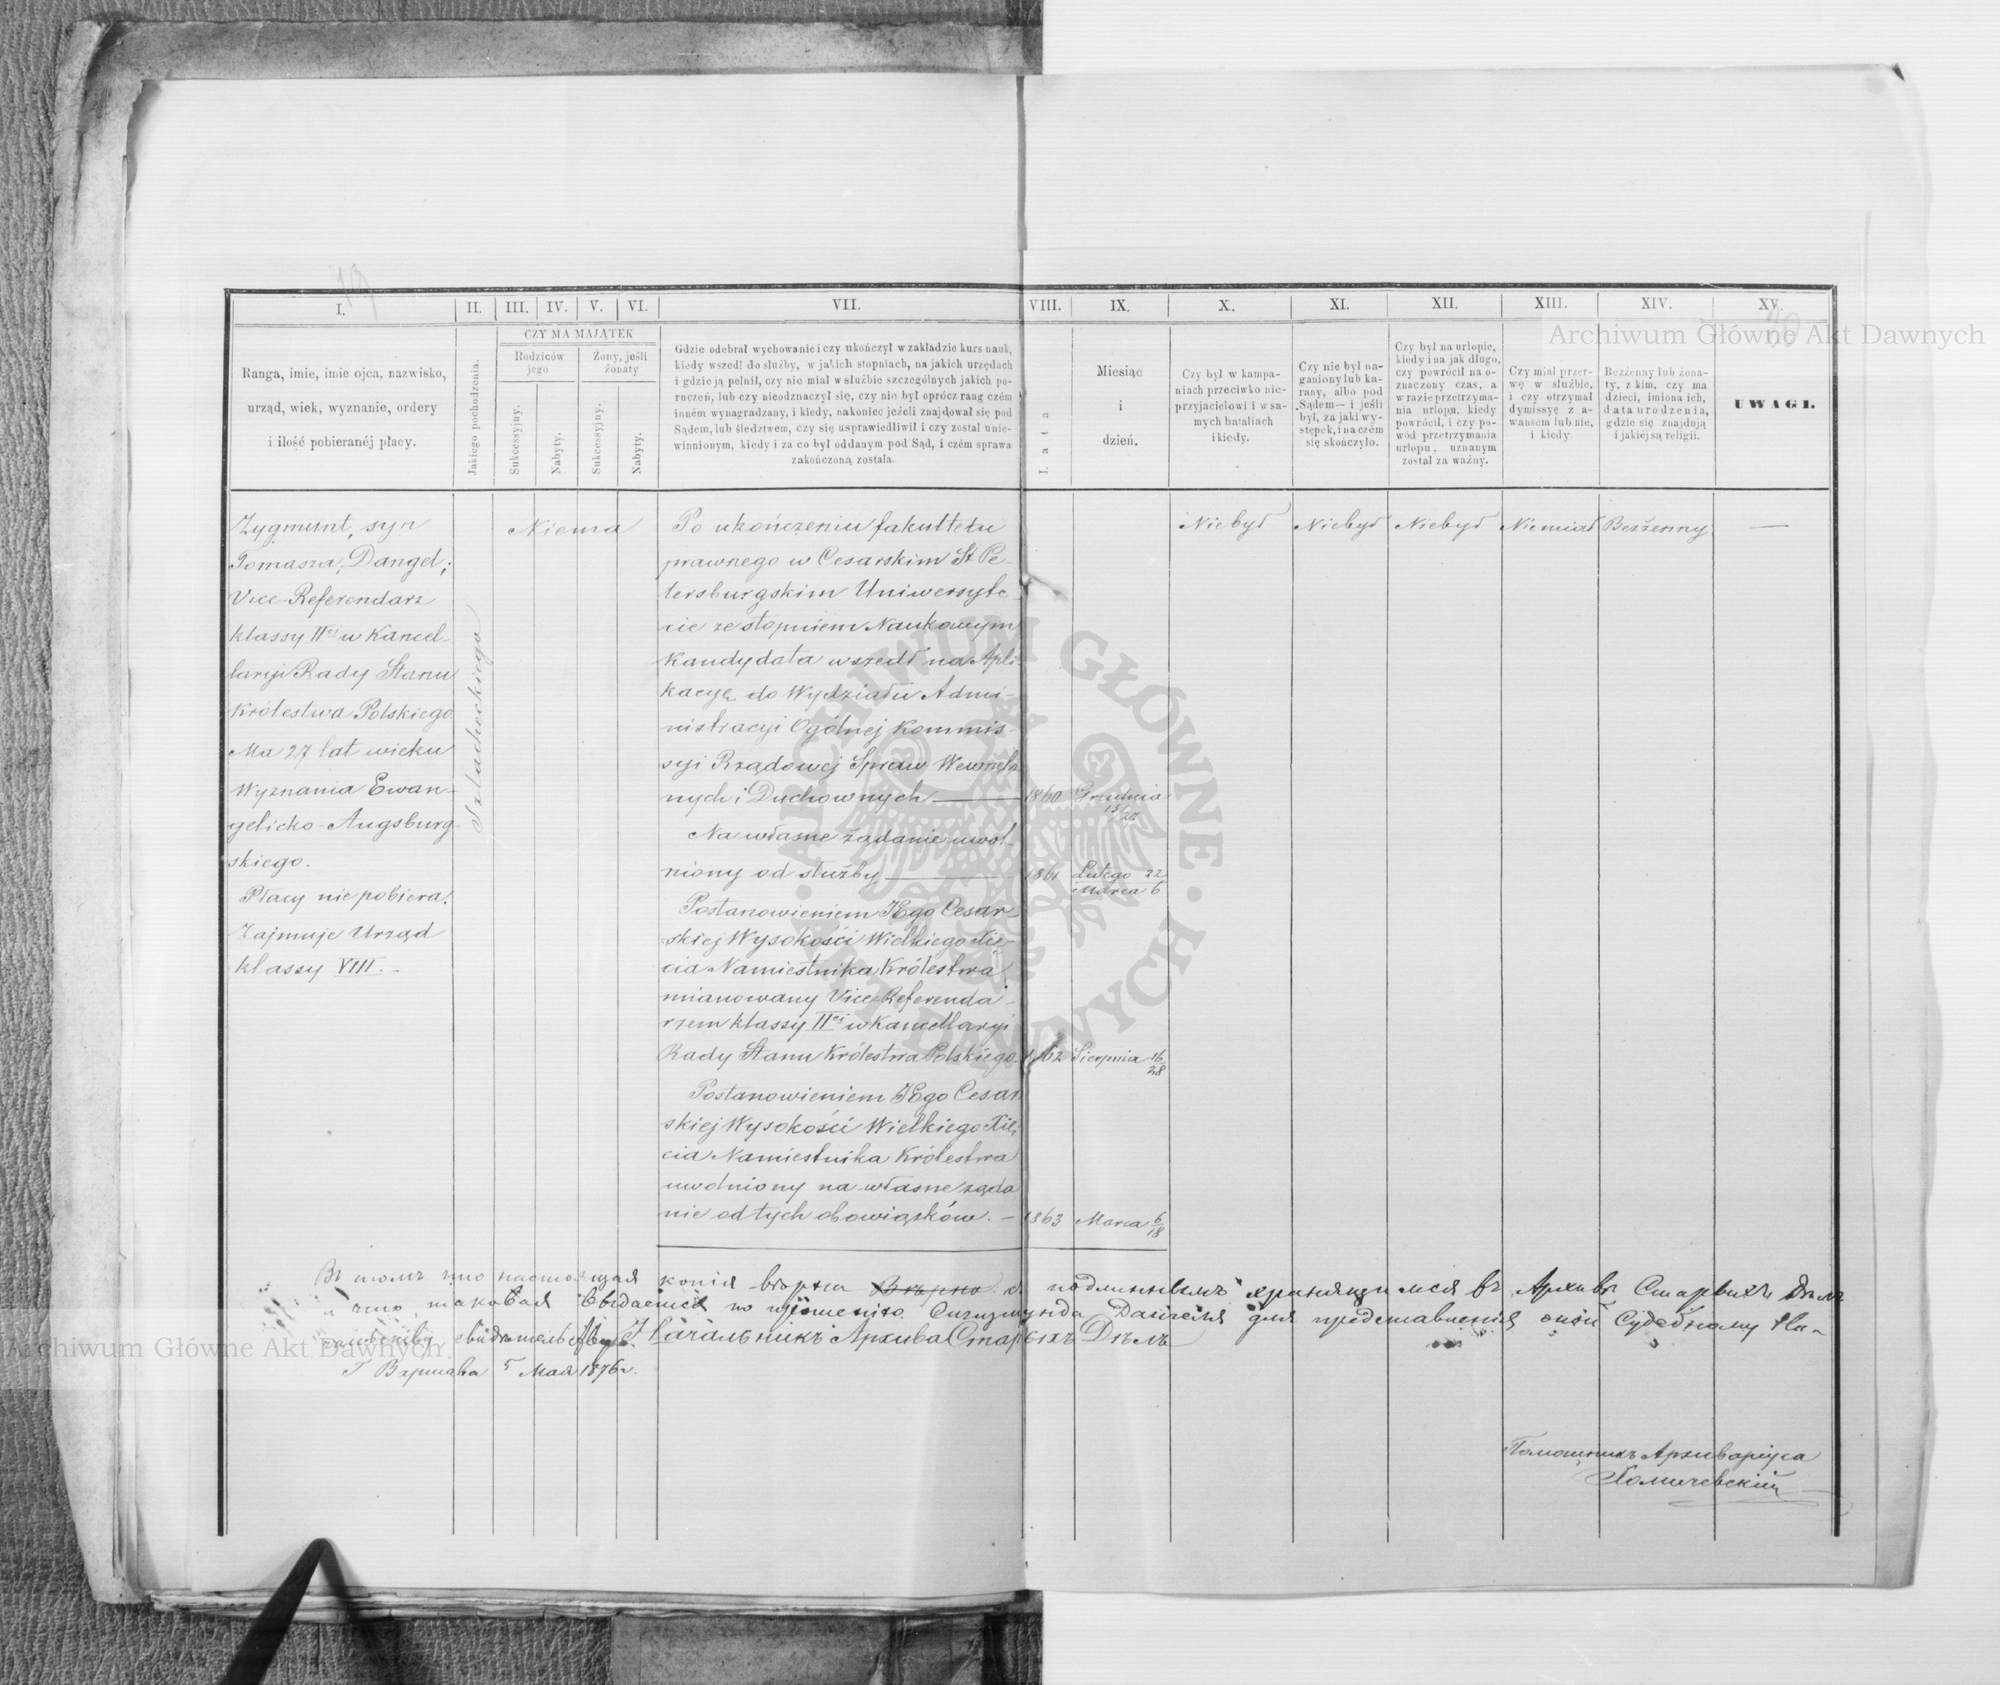 19
20
Archiwum Główne Akt Dawnych
I. II. III. IV. V. VI. VII. VIII. IX. X. XI. XII. XIII. XIV. XV.
Ranga, imie, imie ojca, nazwisko,
urząd, wiek, wyznanie, ordery
i ilość pobieranéj płacy.
Jakiego pochodzenia.
CZY MA MAJĄTEK
Rodziców
jego
Żony, jeśli
żonaty
Sukcessyjny.
Nabyty.
Sukcessyjny.
Nabyty.
Gdzie odebrał wychowanie i czy ukończył w zakładzie kurs nauk,
kiedy wszedł do służby, w jakich stopniach, na jakich urzędach
i gdzie ją pełnił, czy nie miał w służbie szczególnych jakich po-
ruczeń, lub czy nieodznaczył się, czy nie był oprócz rang czém
inném wynagradzany, i kiedy, nakoniec jeżeli znajdował się pod
Sądem, lub śledztwem, czy się usprawiedliwił i czy został unie-
winnionym, kiedy i za co był oddanym pod Sąd, i czém sprawa
zakończoną została.
Lata
Miesiąc
i
dzień.
Czy był w kampa-
niach przeciwko nie-
przyjacielowi i w sa-
mych bataliach
i kiedy.
Czy nie był na-
ganiony lub ka-
rany, albo pod
Sądem— i jeśli
był, za jaki wy-
stępek, i na czém
się skończyło.
Czy był na urlopie,
kiedy i na jak długo,
czy powrócił na o-
znaczony czas, a
w razie przetrzyma-
nia urlopu, kiedy
powrócił, i czy po-
wód przetrzymania
urlopu, uznanym
został za ważny.
Czy miał przer-
wę w służbie,
i czy otrzymał
dymissyę z a-
wansem lub nie,
i kiedy.
Bezżenny lub żona-
ty, z kim, czy ma
dzieci, imiona ich,
data urodzenia,
gdzie się znajdują
i jakiej są religii.
UWAGI.
Zygmunt, syn
Tomasza, Dangel;
Vice-Referendarz
klassy IIej w Kancel-
laryi Rady Stanu
Królestwa Polskiego
Ma 27 lat wieku
Wyznania Ewan-
gelicko-Augsburg-
skiego.
Płacy nie pobiera.
Zajmuje Urząd
klassy VIII. –
Szlacheckiego
Niema
Po ukończeniu fakultetu
prawnego w Cesarskim St Pe-
tersburgskim Uniwersyte-
cie ze stopniem Naukowym
Kandydata wszedł na Apli-
kacyę do Wydziału Admi-
nistracyi Ogólnej Kommis-
syi Rządowej Spraw Wewnętrz
nych i Duchownych — 1860 Grudnia 15/27
Na własne żądanie uwol-
niony od służby — 1861 Lutego 22 Marca 6
Postanowieniem JEgo Cesar-
skiej Wysokości Wielkiego Xię-
cia Namiestnika Królestwa
mianowany Vice-Referenda-
rzem klassy IIej w Kancellaryi
Rady Stanu Królestwa Polskiego. 1862 Sierpnia 16/28
Postanowieniem JEgo Cesar
skiej Wysokości Wielkiego Xię
cia Namiestnika Królestwa
uwolniony na własne żąda
nie od tych obowiązków. – 1863 Marca 6/18
Niebył
Niebył
Niebył
Niemiał
Bezżenny
—
Въ томъ что настоящая копія вѣрна Вѣрно съ подлиннымъ хранящимся въ Архивѣ Старыхъ Дѣлъ
и что таковая выдается по прошенію Сигизмунда Дангеля для представленія оной Судебному
свидѣтельствую. Начальникъ Архива Старыхъ Дѣлъ
Г Варшава 5 Мая 1876 г.
Archiwum Główne Akt Dawnych
Помощникъ Архиваріуса
ARCHIWUM GŁÓWNE AKT DAWNYCH